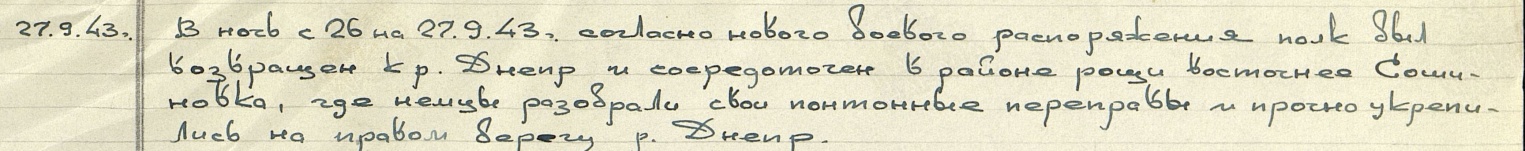 27.9.43г. В ночь с 26 на 27.9.43г. согласно нового боевого распоряжения полк был
возвращен к р. Днепр и сосредоточен в районе рощи восточнее Соши-
новка, где немцы разобрали свои понтонные переправы и прочно укрепи-
лись на правом берегу р. Днепр.